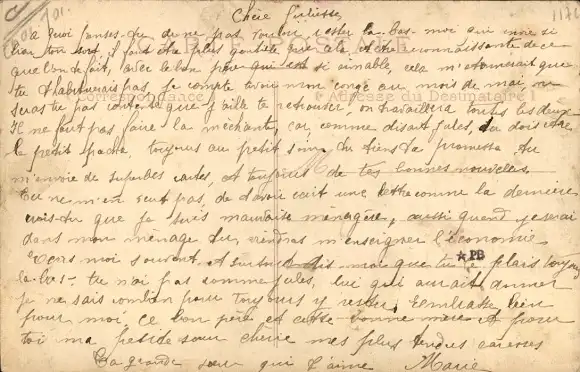 Chère Juliette
a quoi penses-tu de ne pas vouloir rester la-bas moi qui envie si
bien ton sort, il faut être plus gentille que cela et être reconnaissante de ce
que l'on te fait, avec le bon père qui est si aimable, cela m'étonnerait que
tu t'habituerais pas, je compte avoir mon congé au mois de mai, ne
seras tu pas contente que j'aille te retrouver, on travaillera toutes les deux
Correspondance Adresse du Destinataire
Il ne faut pas faire la méchante, car, comme disait Jules, tu dois être
le petit pacha, toujours au petit soin, tu tiens ta promesse tu
m'envoie de superbes cartes, et toujours de tes bonnes nouvelles
Tu ne m'en veut pas, de t'avoir écrit une lettre comme la dernière
crois-tu que je suis mauvaise ménagère, aussi quand je serai
dans mon ménage tu viendras m'enseigner l'économie
Ecris moi souvent et surtout dis moi que tu te plais toujours
PB
la-bas, tu n'ai pas comme Jules, lui qui aurait donner
je ne sais combien pour toujours y rester. Embrasse bien
pour moi, ce bon père et cette bonne mère et pour
toi ma petite sœur chérie mes plus tendres caresses
Ta grande sœur qui t'aime Marie